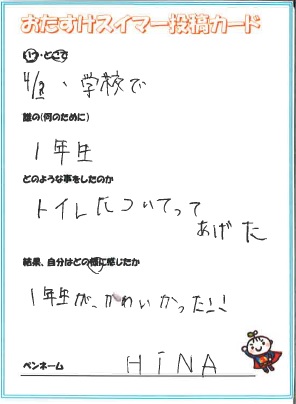 おたすけスイマー投稿カード
いつ・どこで
・学校で
誰の(何のために)
1年生
どのような事をしたのか
トイレについてって
あげた
結果、自分はどの様に感じたか
1年生が、かわいかった!!
ペンネーム HINA